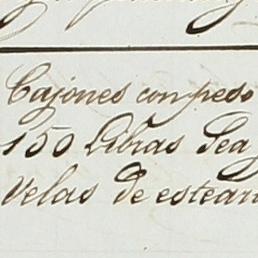 Cajones con peso
150 Libras Sea
Velas de estearı